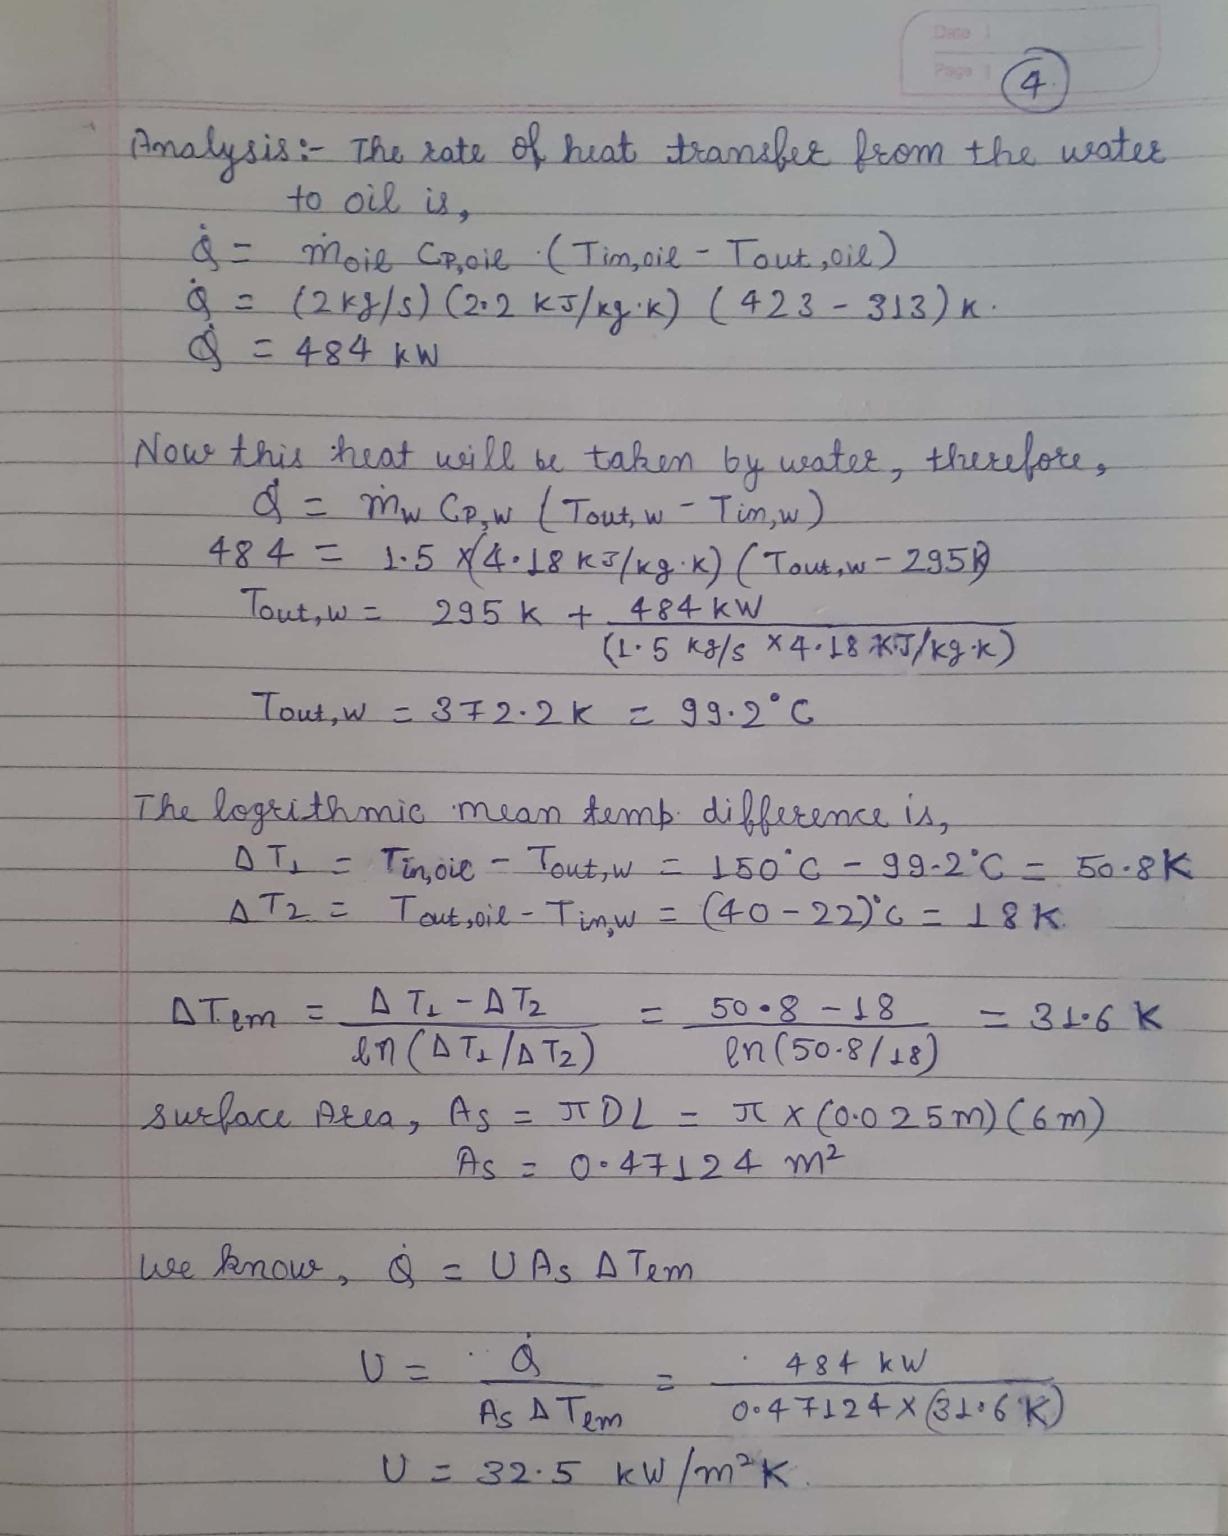 Date
Page
4.
Analysis:- The rate of heat transfer from the water
to oil is,
Q̇ = ṁoil Cp,oil (Tin,oil - Tout,oil)
Q̇ = (2kg/s) (2.2 KJ/kg.K) (423 - 313) K.
Q̇ = 484 kW
Now this heat will be taken by water, therefore,
Q̇ = ṁw Cp,w (Tout,w - Tin,w)
484 = 1.5 x(4.18 KJ/kg.K) (Tout,w - 295K)
Tout,w = 295 K + 484 KW
(1.5 Kg/s x 4.18 KJ/kg.K)
Tout,w = 372.2K = 99.2°C
The logrithmic mean temp. difference is,
ΔT1 = Tin,oil - Tout,w = 150°C - 99.2°C = 50.8K
ΔT2 = Tout,oil - Tin,w = (40 - 22)°C = 18K.
ΔTlm = ΔT1 - ΔT2 = 50.8 - 18 = 31.6 K
ln(ΔT1/ΔT2) ln(50.8/18)
surface Area, As = πDL = π x (0.025m) (6m)
As = 0.47124 m²
we know, Q̇ = U As ΔTlm
U = Q̇ = 484 kW
As ΔTlm 0.47124 x (31.6 K)
U = 32.5 kW/m²K.